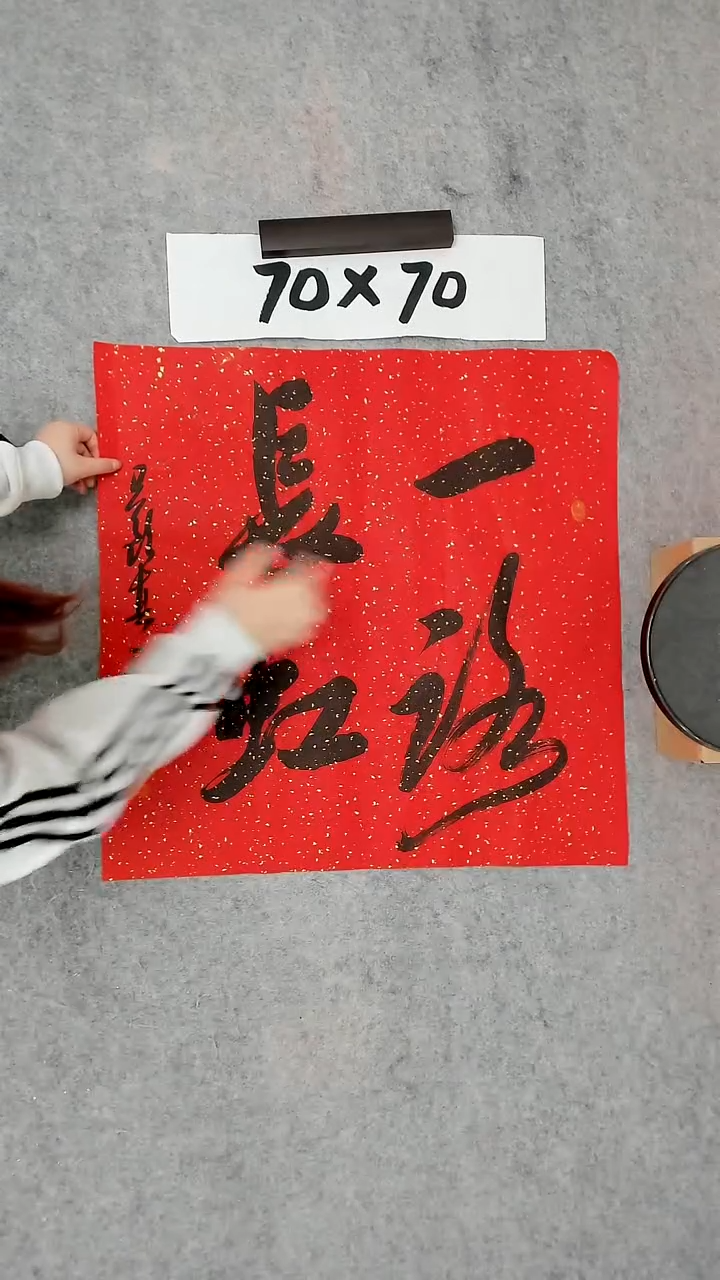 70×70
一路
長虹